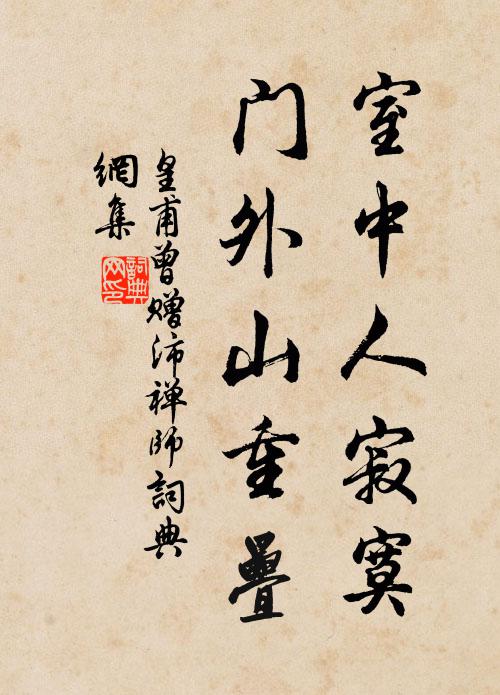 室中人寂寞
门外山重疊
皇甫曾赠沛禅师詞典
網集
詞典
网印